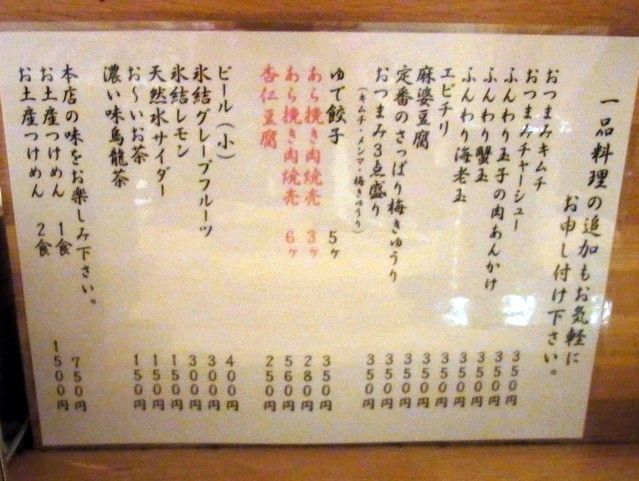 一品料理の追加もお気軽に
お申し付け下さい。
おつまみキムチ 350円
おつまみチャーシュー 350円
ふんわり玉子の肉あんかけ 350円
ふんわり蟹玉 350円
ふんわり海老玉 350円
エビチリ 350円
麻婆豆腐 350円
定番のさっぱり梅きゅうり 350円
おつまみ3点盛り 350円
(キムチ・メンマ・梅きゅうり)
ゆで餃子 5ヶ 350円
あら挽き肉焼売 3ヶ 280円
あら挽き肉焼売 6ヶ 560円
杏仁豆腐 250円
ビール(小) 400円
氷結グレープフルーツ 300円
氷結レモン 300円
天然水サイダー 150円
お~いお茶 150円
濃い味烏龍茶 150円
本店の味をお楽しみ下さい。
お土産つけめん 1食 750円
お土産つけめん 2食 1500円